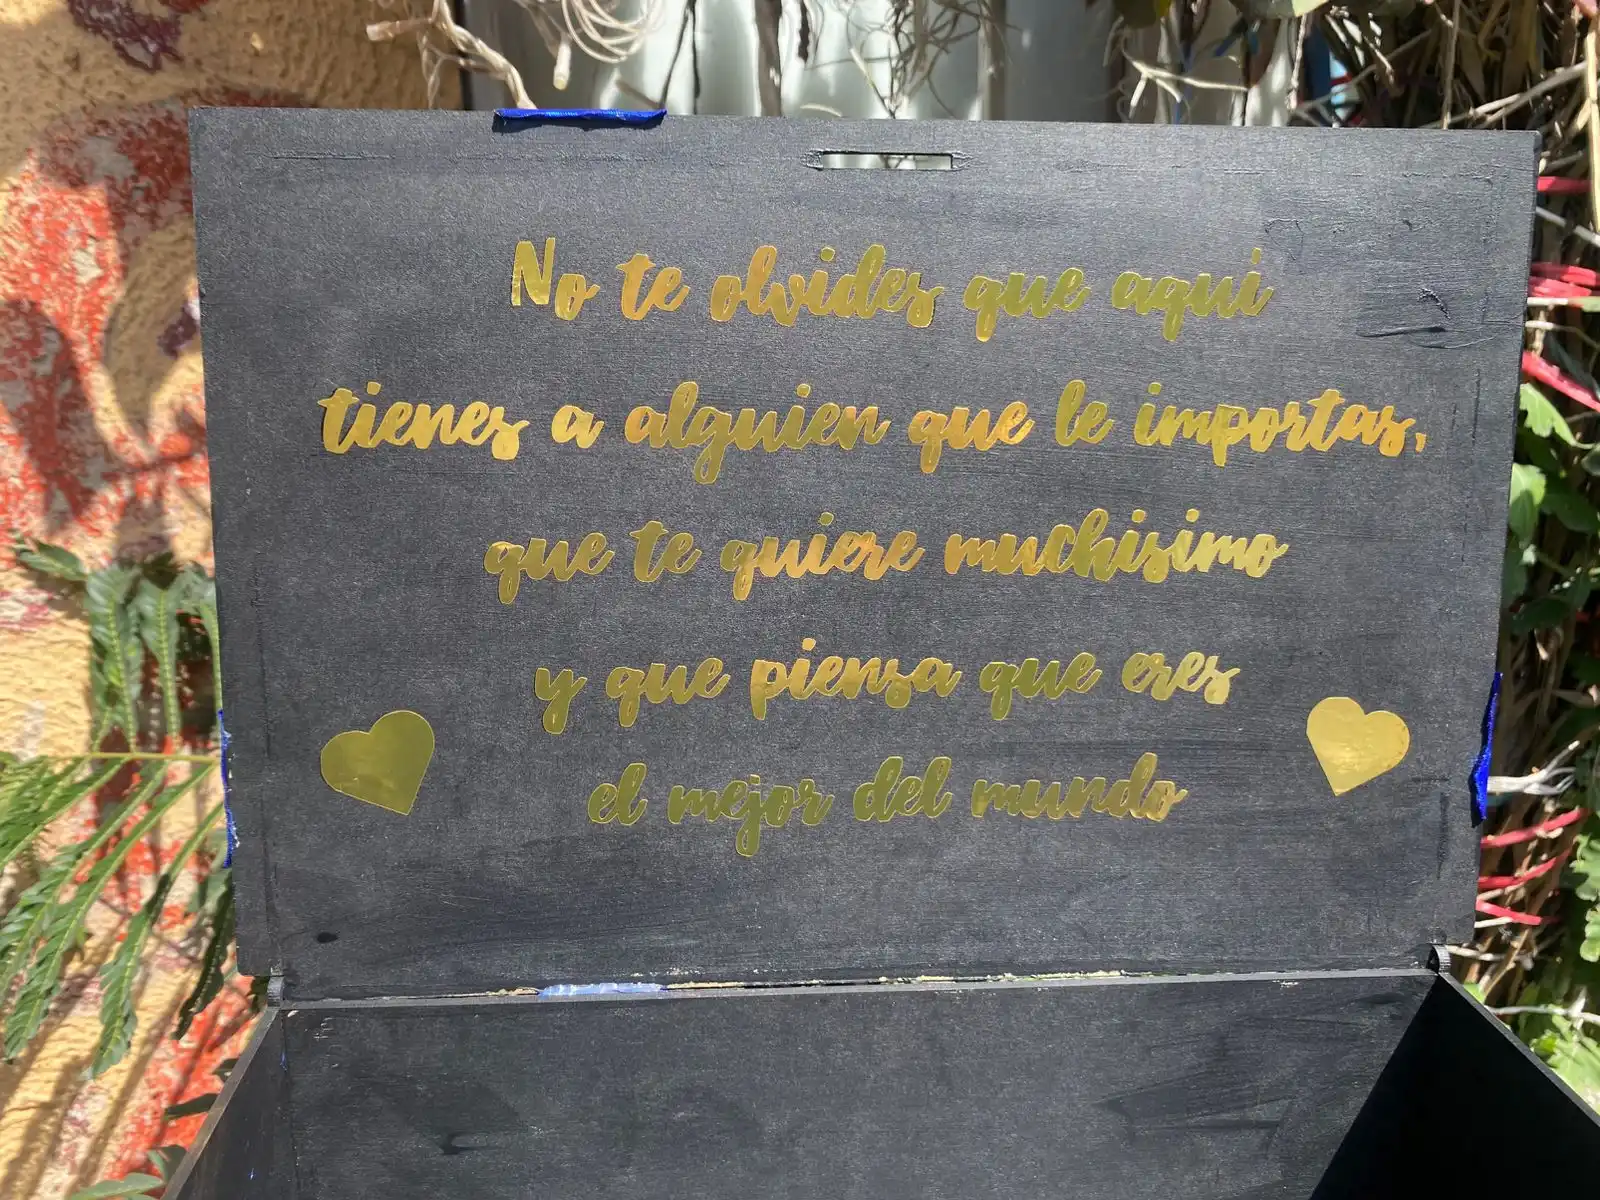 No te olvides que aqui
tienes a alguien que le importas,
que te quiere muchisimo
y que piensa que eres
el mejor del mundo